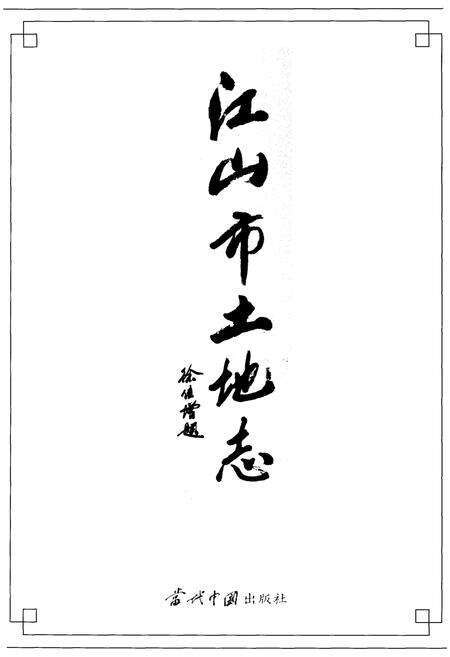 江山市土地志
徐佳增题
當代中国出版社